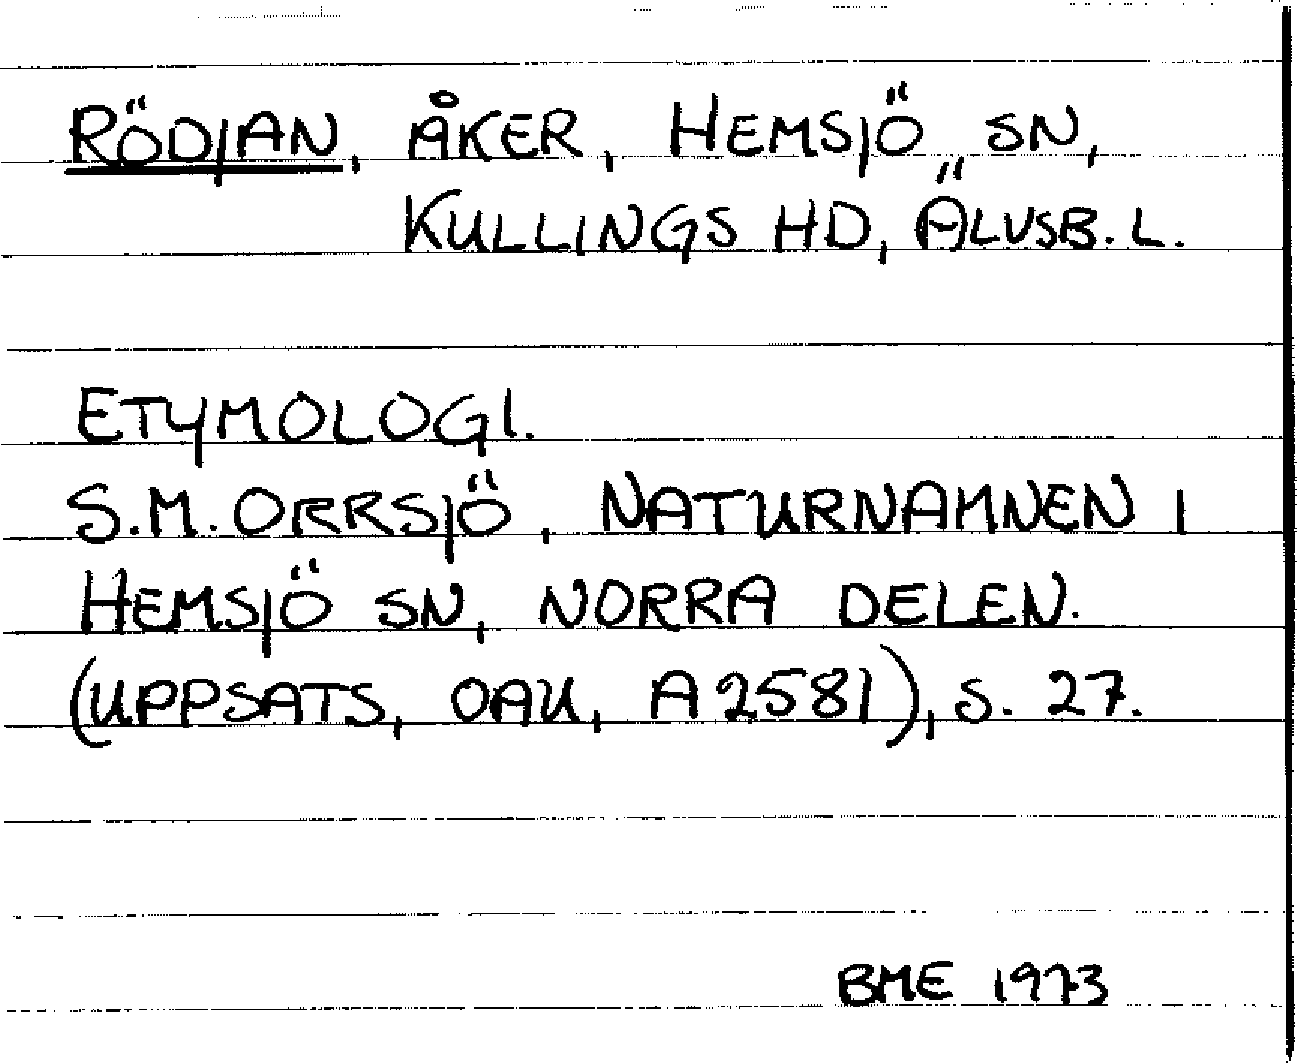 RÖDJAN, ÅKER, HEMSJÖ SN,
KULLINGS HD, ÄLVSB. L.
ETYMOLOGI.
S.M. ORRSJÖ, NATURNAMNEN I
HEMSJÖ SN, NORRA DELEN.
(UPPSATS, OAU, A 2581), S. 27.
BME 1973